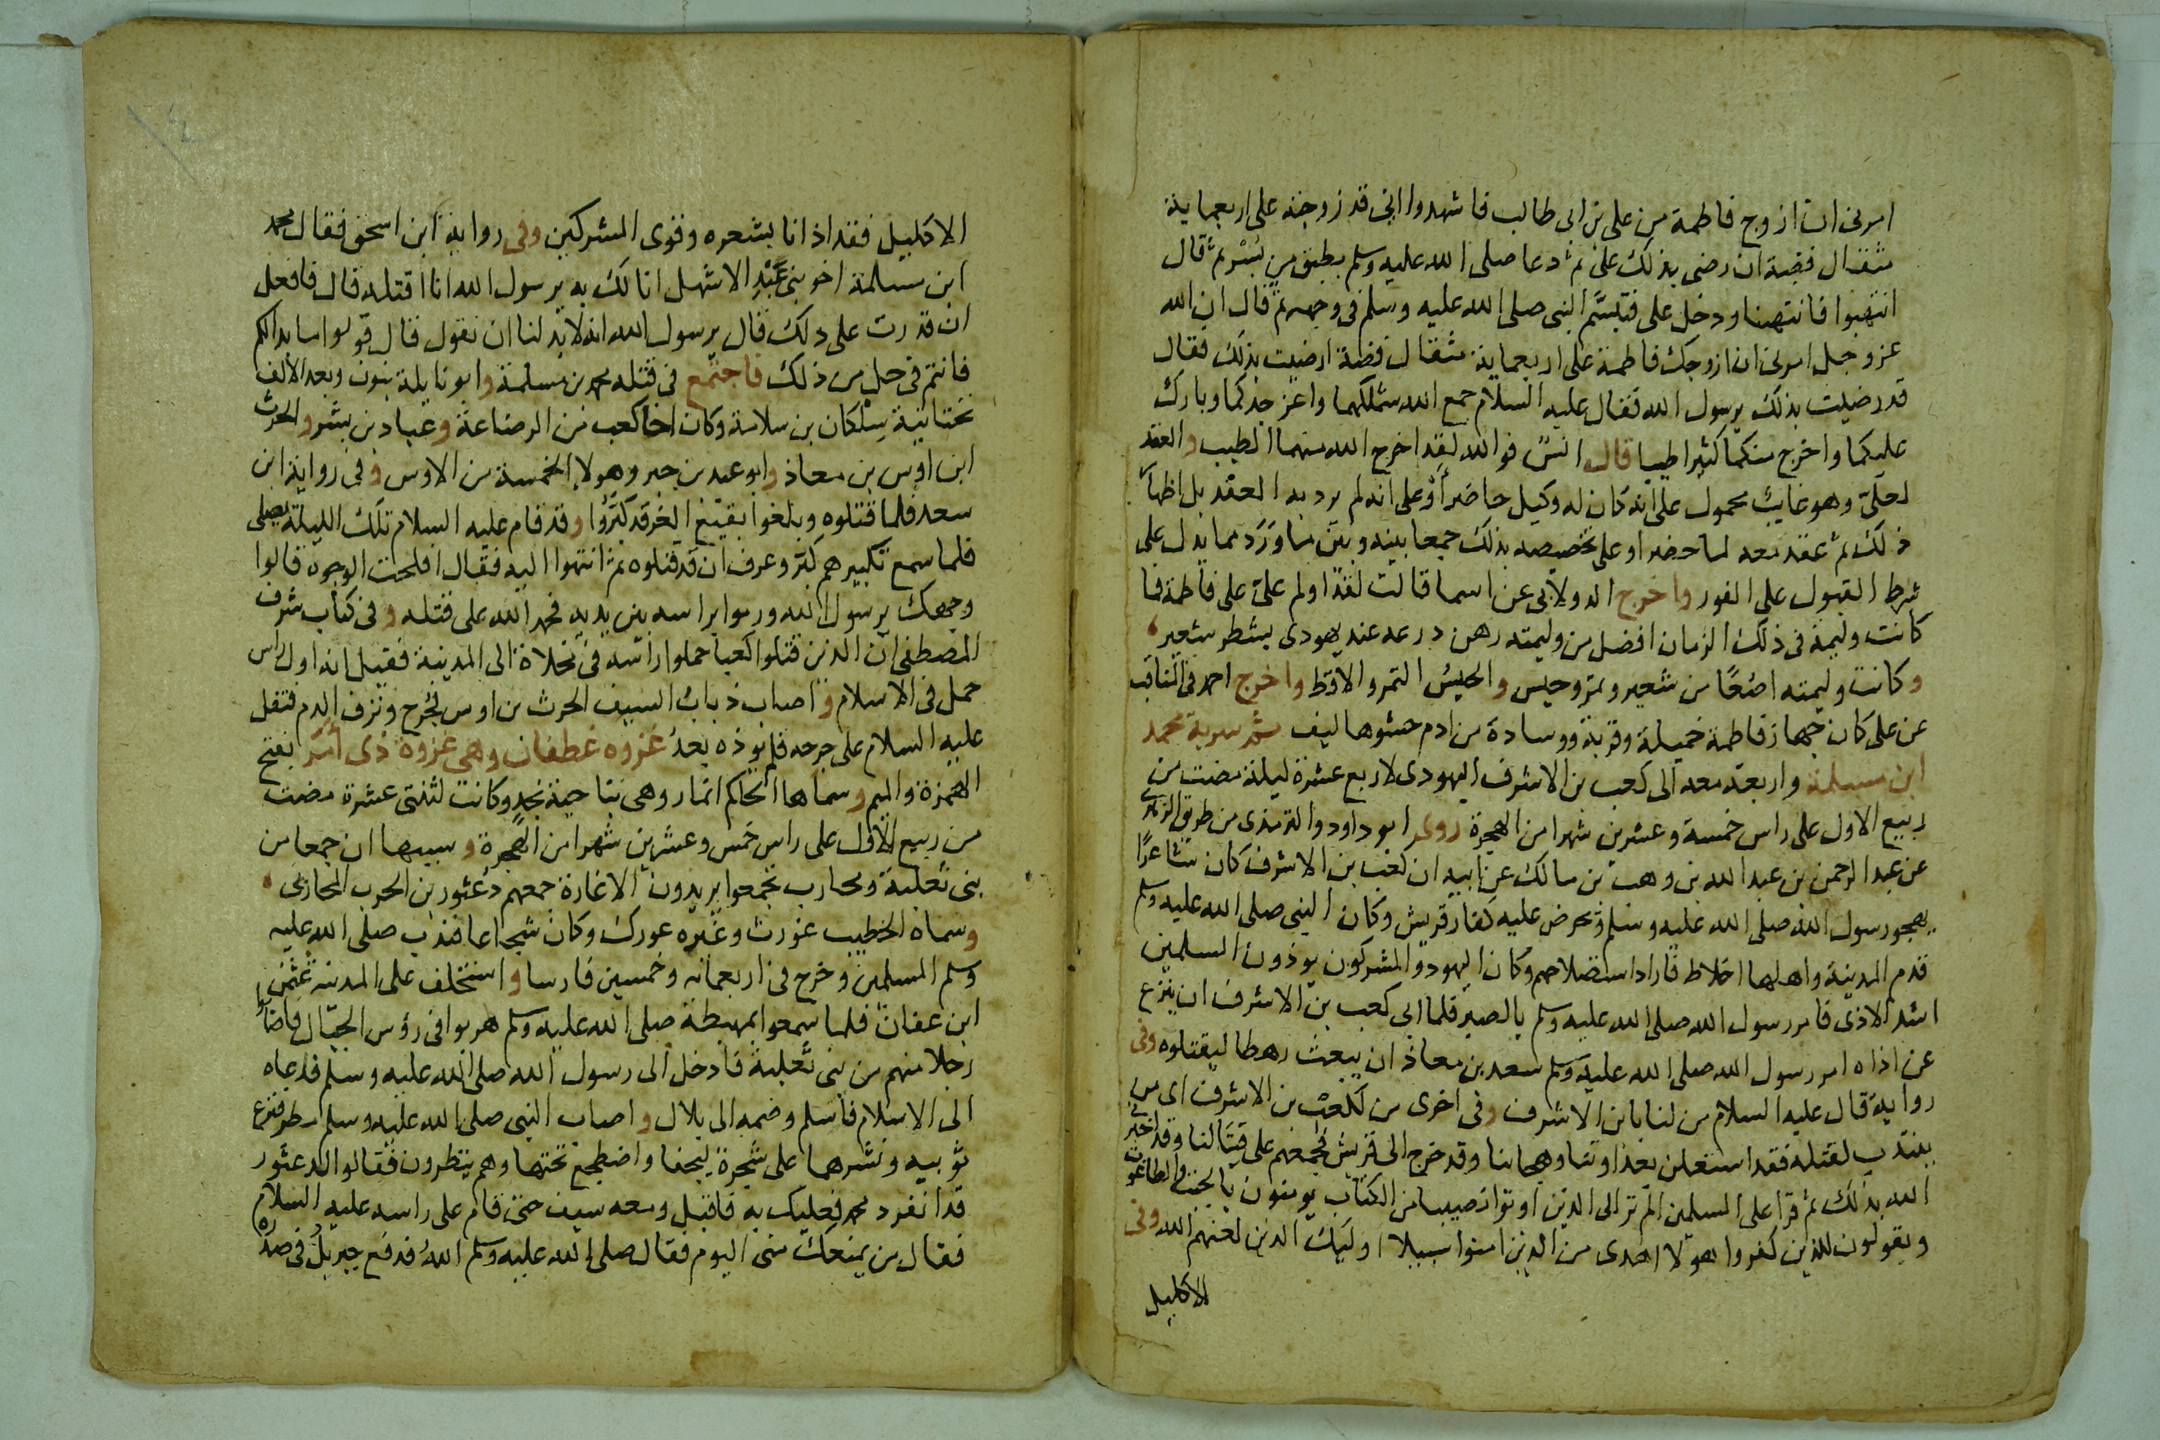 امرنى ان ازوج فاطمة من على بن ابى طالب فاشهدوا انى قد زوجته على اربعماية
مثقال فضة ان رضى بذلك على ثم دعا صلى الله عليه وسلم بطبق من بسر ثم قال
انتهبوا فانتهبنا ودخل على فتبسم النبى صلى الله عليه وسلم فى وجهه ثم قال ان الله
عز وجل امرنى ان ازوجك فاطمة على اربعماية مثقال فضة ارضيت بذلك فقال
قد رضيت بذلك يرسول الله فقال عليه السلام جمع الله شملكما واعز جدكما وبارك
عليكما واخرج منكما كثيرا طيبا قال انس فوالله لقد اخرج الله منهما الطيب والعقد
لعلى وهو غايب محمول على انه كان له وكيل حاضر أو على انه لم يرد به العقد بل اظهار
ذلك ثم عقد معه لما حضر او على تخصيصه بذلك جمعا بينه وبين ما ورد مما يدل على
شرط القبول على الفور واخرج الدولابى عن اسما قالت لقد اولم على على فاطمة فما
كانت وليمة فى ذلك الزمان افضل من وليمته رهن درعه عند يهودى بشطر شعير
وكانت وليمته اصعًا من شعير وتمر وحيس والحيس التمر والاقط واخرج احمد فى المناقب
عن على كان جهاز فاطمة خميلة وقربة ووسادة من ادم حشوها ليف ثم سرية محمد
ابن مسلمة واربعة معه الى كعب بن الاشرف اليهودى لاربع عشرة ليلة مضت من
ربيع الاول على راس خمسة وعشرين شهرا من الهجرة روى ابو داود والترمذى من طريق الزهرى
عن عبد الرحمن بن عبد الله بن وهب بن مالك عن ابيه ان كعب بن الاشرف كان شاعرًا
يهجو رسول الله صلى الله عليه وسلم ويحرض عليه كفار قريش وكان النبى صلى الله عليه وسلم
قدم المدينة واهلها اخلاط فاراد استصلاحهم وكان اليهود والمشركون يوذون المسلمين
اشد الاذى فامر رسول الله صلى الله عليه وسلم بالصبر فلما ابى كعب بن الاشرف ان ينزع
عن اذاه امر رسول الله صلى الله عليه وسلم سعد بن معاذ ان يبعث رهطا ليقتلوه وفى
رواية قال عليه السلام من لنا بابن الاشرف وفى اخرى من لكعب بن الاشرف اى من
ينتدب لقتله فقد استعلن بعداوتنا وهجاينا وقد خرج الى قريش فجمعهم على قتالنا وقد اخبرنى
الله بذلك ثم قرا على المسلمين الم تر الى الذين اوتوا نصيبا من الكتاب يومنون بالجبت والطاغوت
ويقولون للذين كفروا هولا اهدى من الذين امنوا سبيلا اوليك الذين لعنهم الله وفى
الاكليل
الاكليل فقد اذانا بشعره وقوى المشركين وفى رواية ابن اسحق فقال محمد
ابن مسلمة اخو بنى عبد الاشهل انا لك به يرسول الله انا اقتله قال فافعل
ان قدرت على ذلك قال يرسول الله انه لا بد لنا ان نقول قال قولوا ما بدالكم
فانتم فى حل من ذلك فاجتمع فى قتله محمد بن مسلمة وابو نايلة بنون وبعد الالف
تحتانية سلكان بن سلامة وكان اخا كعب من الرضاعة وعباد بن بشر والحرث
ابن اوس بن معاذ وابو عبس بن جبر وهولا الخمسة من الاوس وفى رواية ابن
سعد فلما قتلوه وبلغوا بقيع الغرقد كبروا وقد قام عليه السلام تلك الليلة يصلى
فلما سمع تكبيرهم كبر وعرف ان قد قتلوه ثم انتهوا اليه فقال افلحت الوجوه قالوا
وجهك يرسول الله ورموا براسه بين يديه فحمد الله على قتله وفى كتاب شرف
المصطفى ان الذين قتلوا كعبا حملوا راسه فى مخلاة الى المدينة فقيل انه اول راس
حمل فى الاسلام واصاب ذباب السيف الحرث بن اوس فجرح ونزف الدم فتفل
عليه السلام على جرحه فلم يوذه بعد غزوه غطفان وهى غزوة ذى أمر بفتح
الهمزة والميم وسماها الحاكم انمار وهى بناحية نجد وكانت لثنتى عشرة مضت
من ربيع الاول على راس خمس وعشرين شهرا من الهجرة وسببها ان جمعا من
بنى ثعلبة ومحارب تجمعوا يريدون الاغارة جمعهم دعثور بن الحرب المحاربى
وسماه الخطيب غورث وغيره عورك وكان شجاعا فندب صلى الله عليه
وسلم المسلمين وخرج فى اربعمائه وخمسين فارسا واستخلف على المدينة عثمن
ابن عفان فلما سمعوا بمهبطه صلى الله عليه وسلم هربوا فى رؤس الجبال فاصابوا
رجلا منهم من بنى ثعلبة فادخل الى رسول الله صلى الله عليه وسلم فدعاه
الى الاسلام فاسلم وضمه الى بلال واصاب النبى صلى الله عليه وسلم مطر فنزع
ثوبيه ونشرهما على شجرة ليجفا واضطجع تحتها وهم ينظرون فقالوا لدعثور
قد انفرد محمد فعليك به فاقبل ومعه سيف حتى قام على راسه عليه السلام
فقال من يمنعك منى اليوم فقال صلى الله عليه وسلم الله فدفع جبريل فى صدره